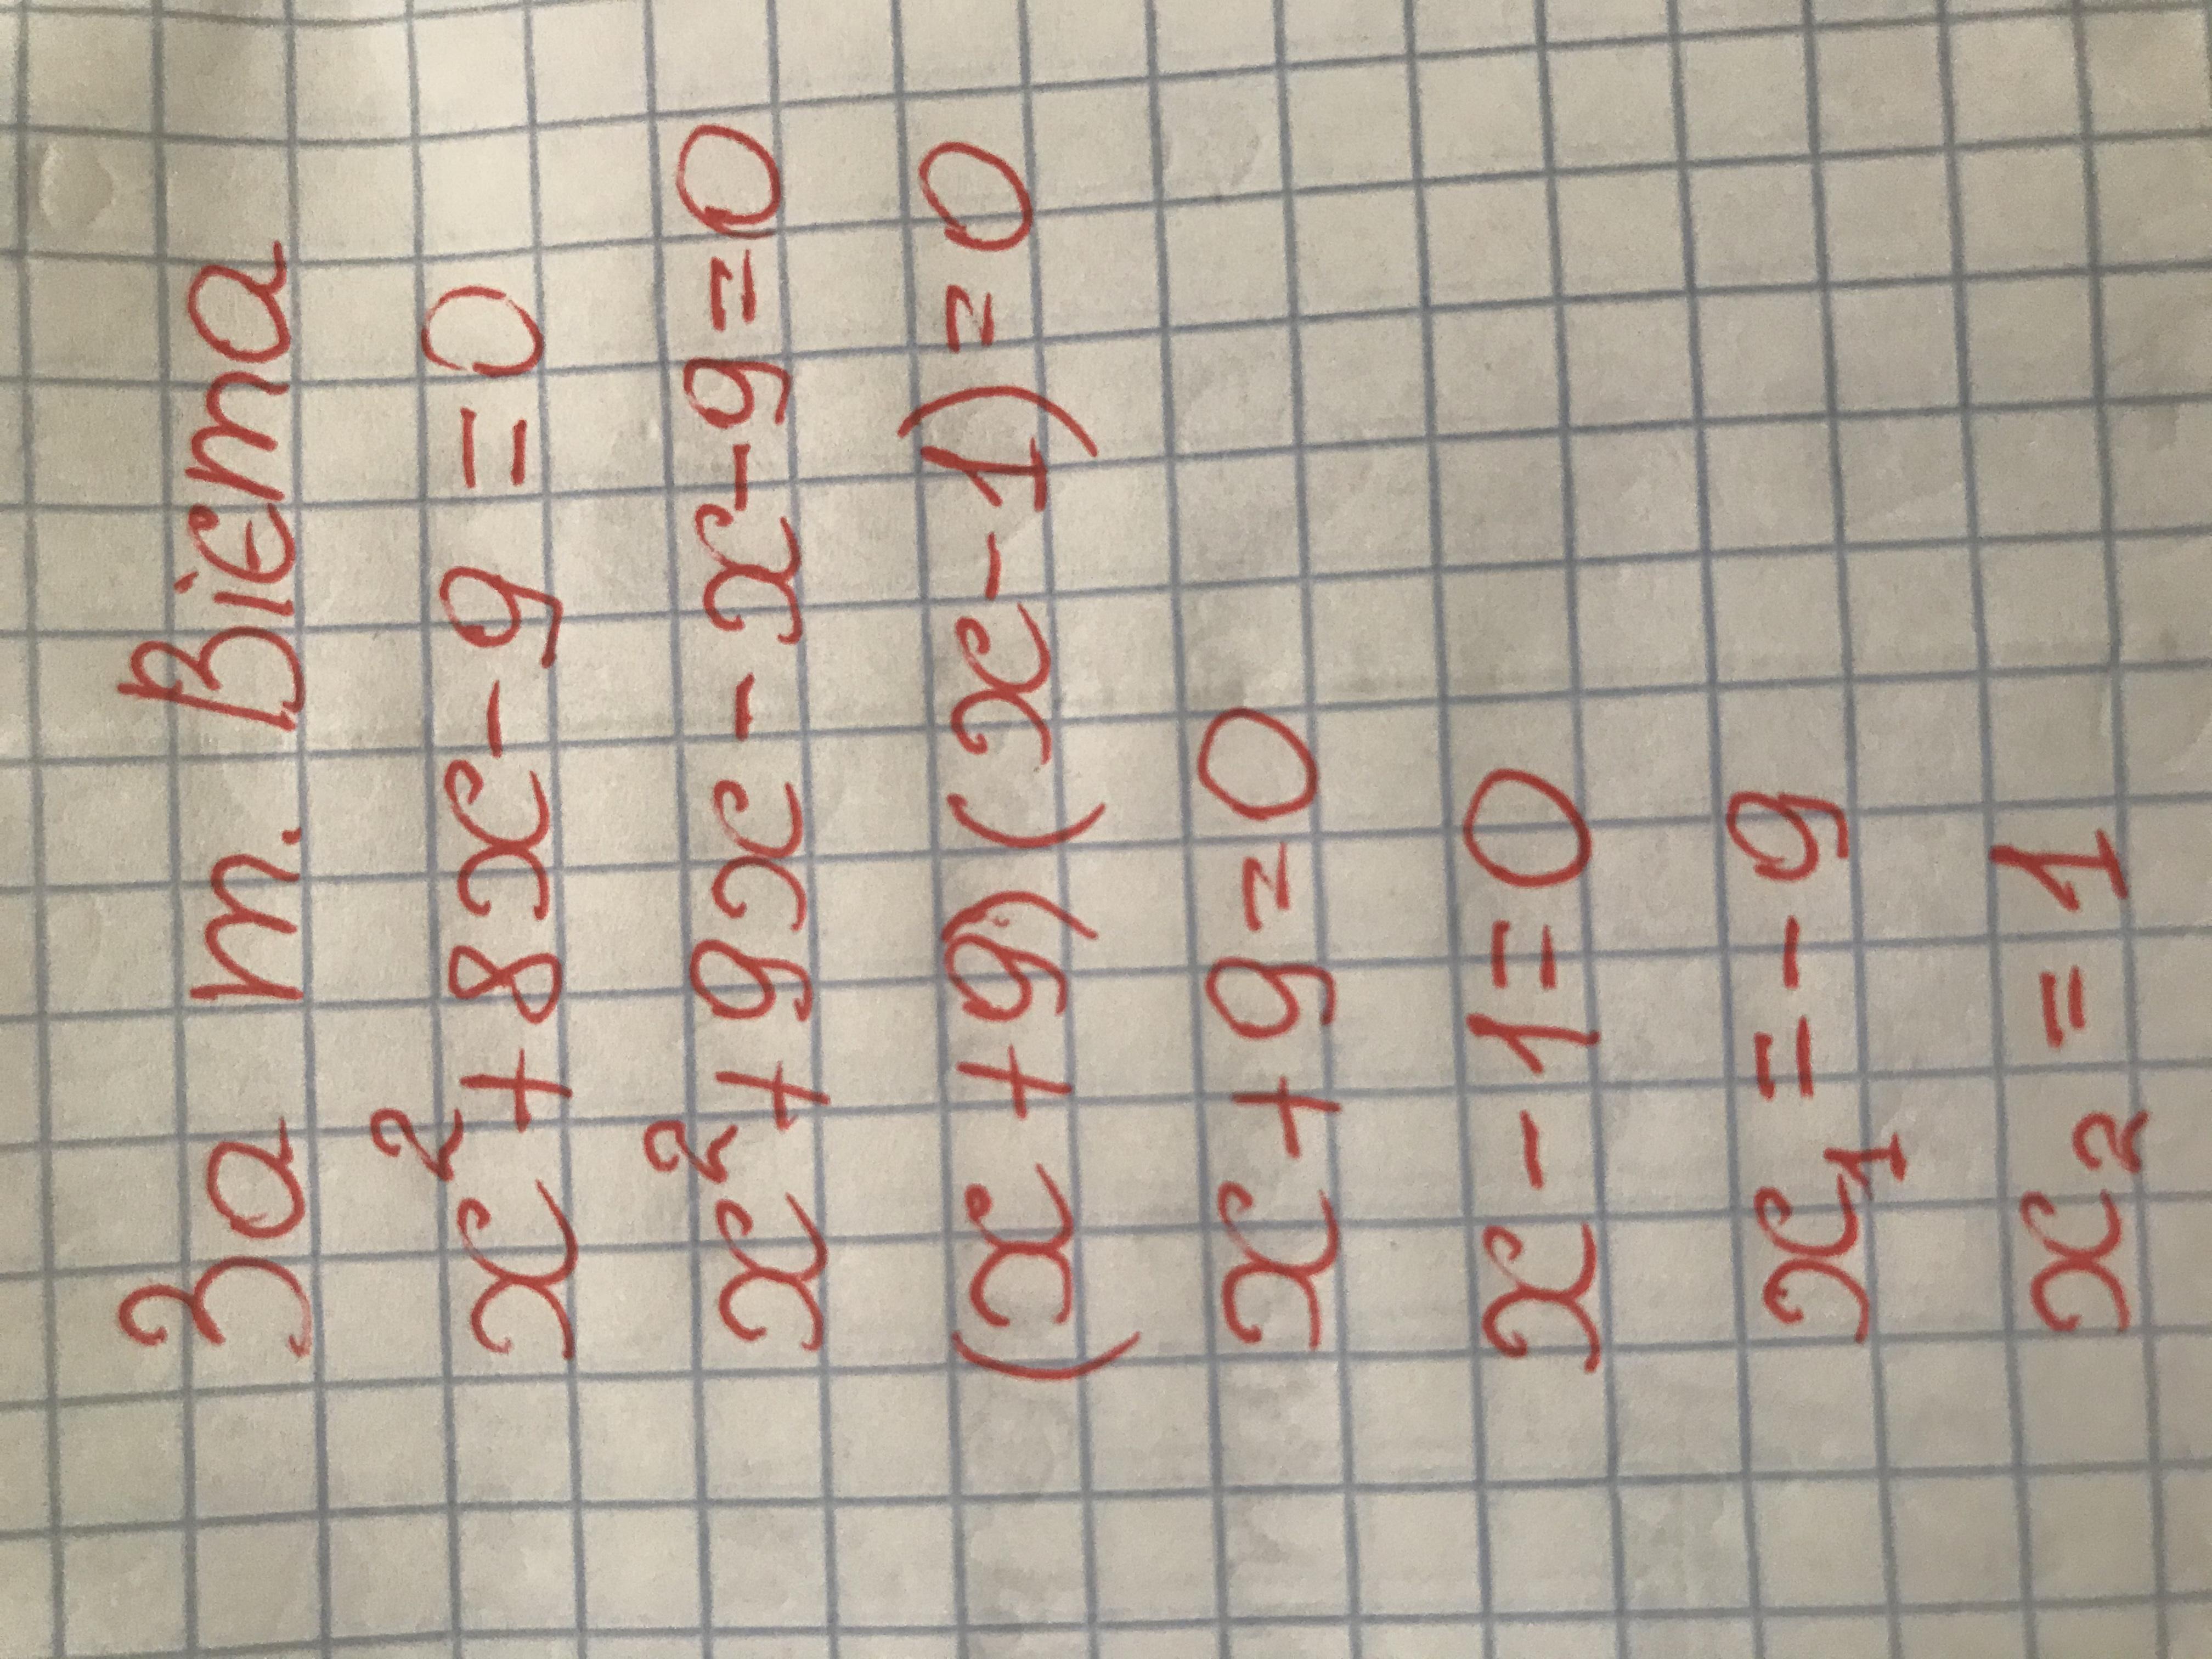 За т. Вієта
x²+8x-9=0
x²+9x-x-9=0
(x+9)(x-1)=0
x+9=0
x-1=0
x₁=-9
x₂=1